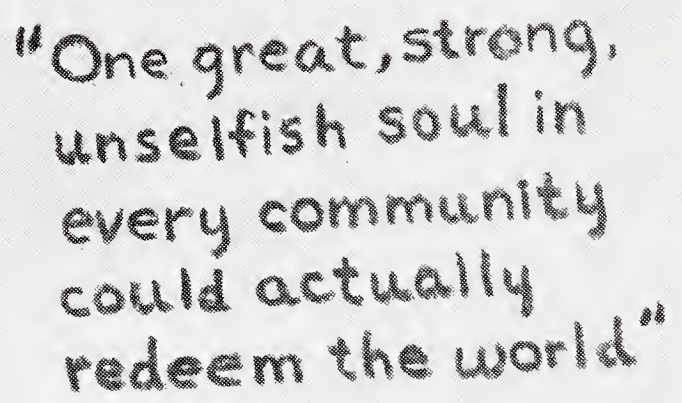 "One great, strong,
unselfish soul in
every community
could actually
redeem the world"